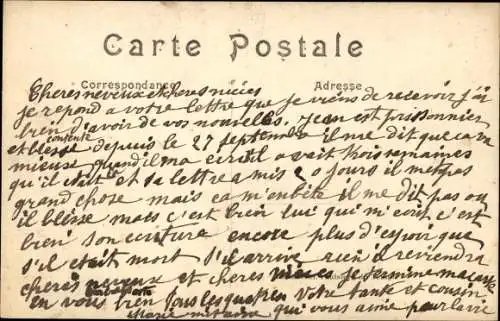 Carte Postale
Correspondance
Adresse
Cheres neveux et cheres nieces
je repond a votre lettre que je viens de recevoir j'ai
bien d'avoir de vos nouvelles. Jean est prisonnier
contente
et blesse depuis le 27 septembre il me dit que ca va
mieux quand il m'a ecrit il avait trois semaines
qu'il etait et sa lettre a mis 20 jours il met pas
grand chose mais ca m'enbete il me dit pas ou
il blesse mais c'est bien lui qui m'ecrit c'est
bien son ecriture encore plus d'espoir que
s'il etait mort s'il arrive rien a reviendre
cheres neveux et cheres nieces je termine ma carte
en vous bien tous les quatre Votre tante et cousin
Marie qui vous aime pour la vie